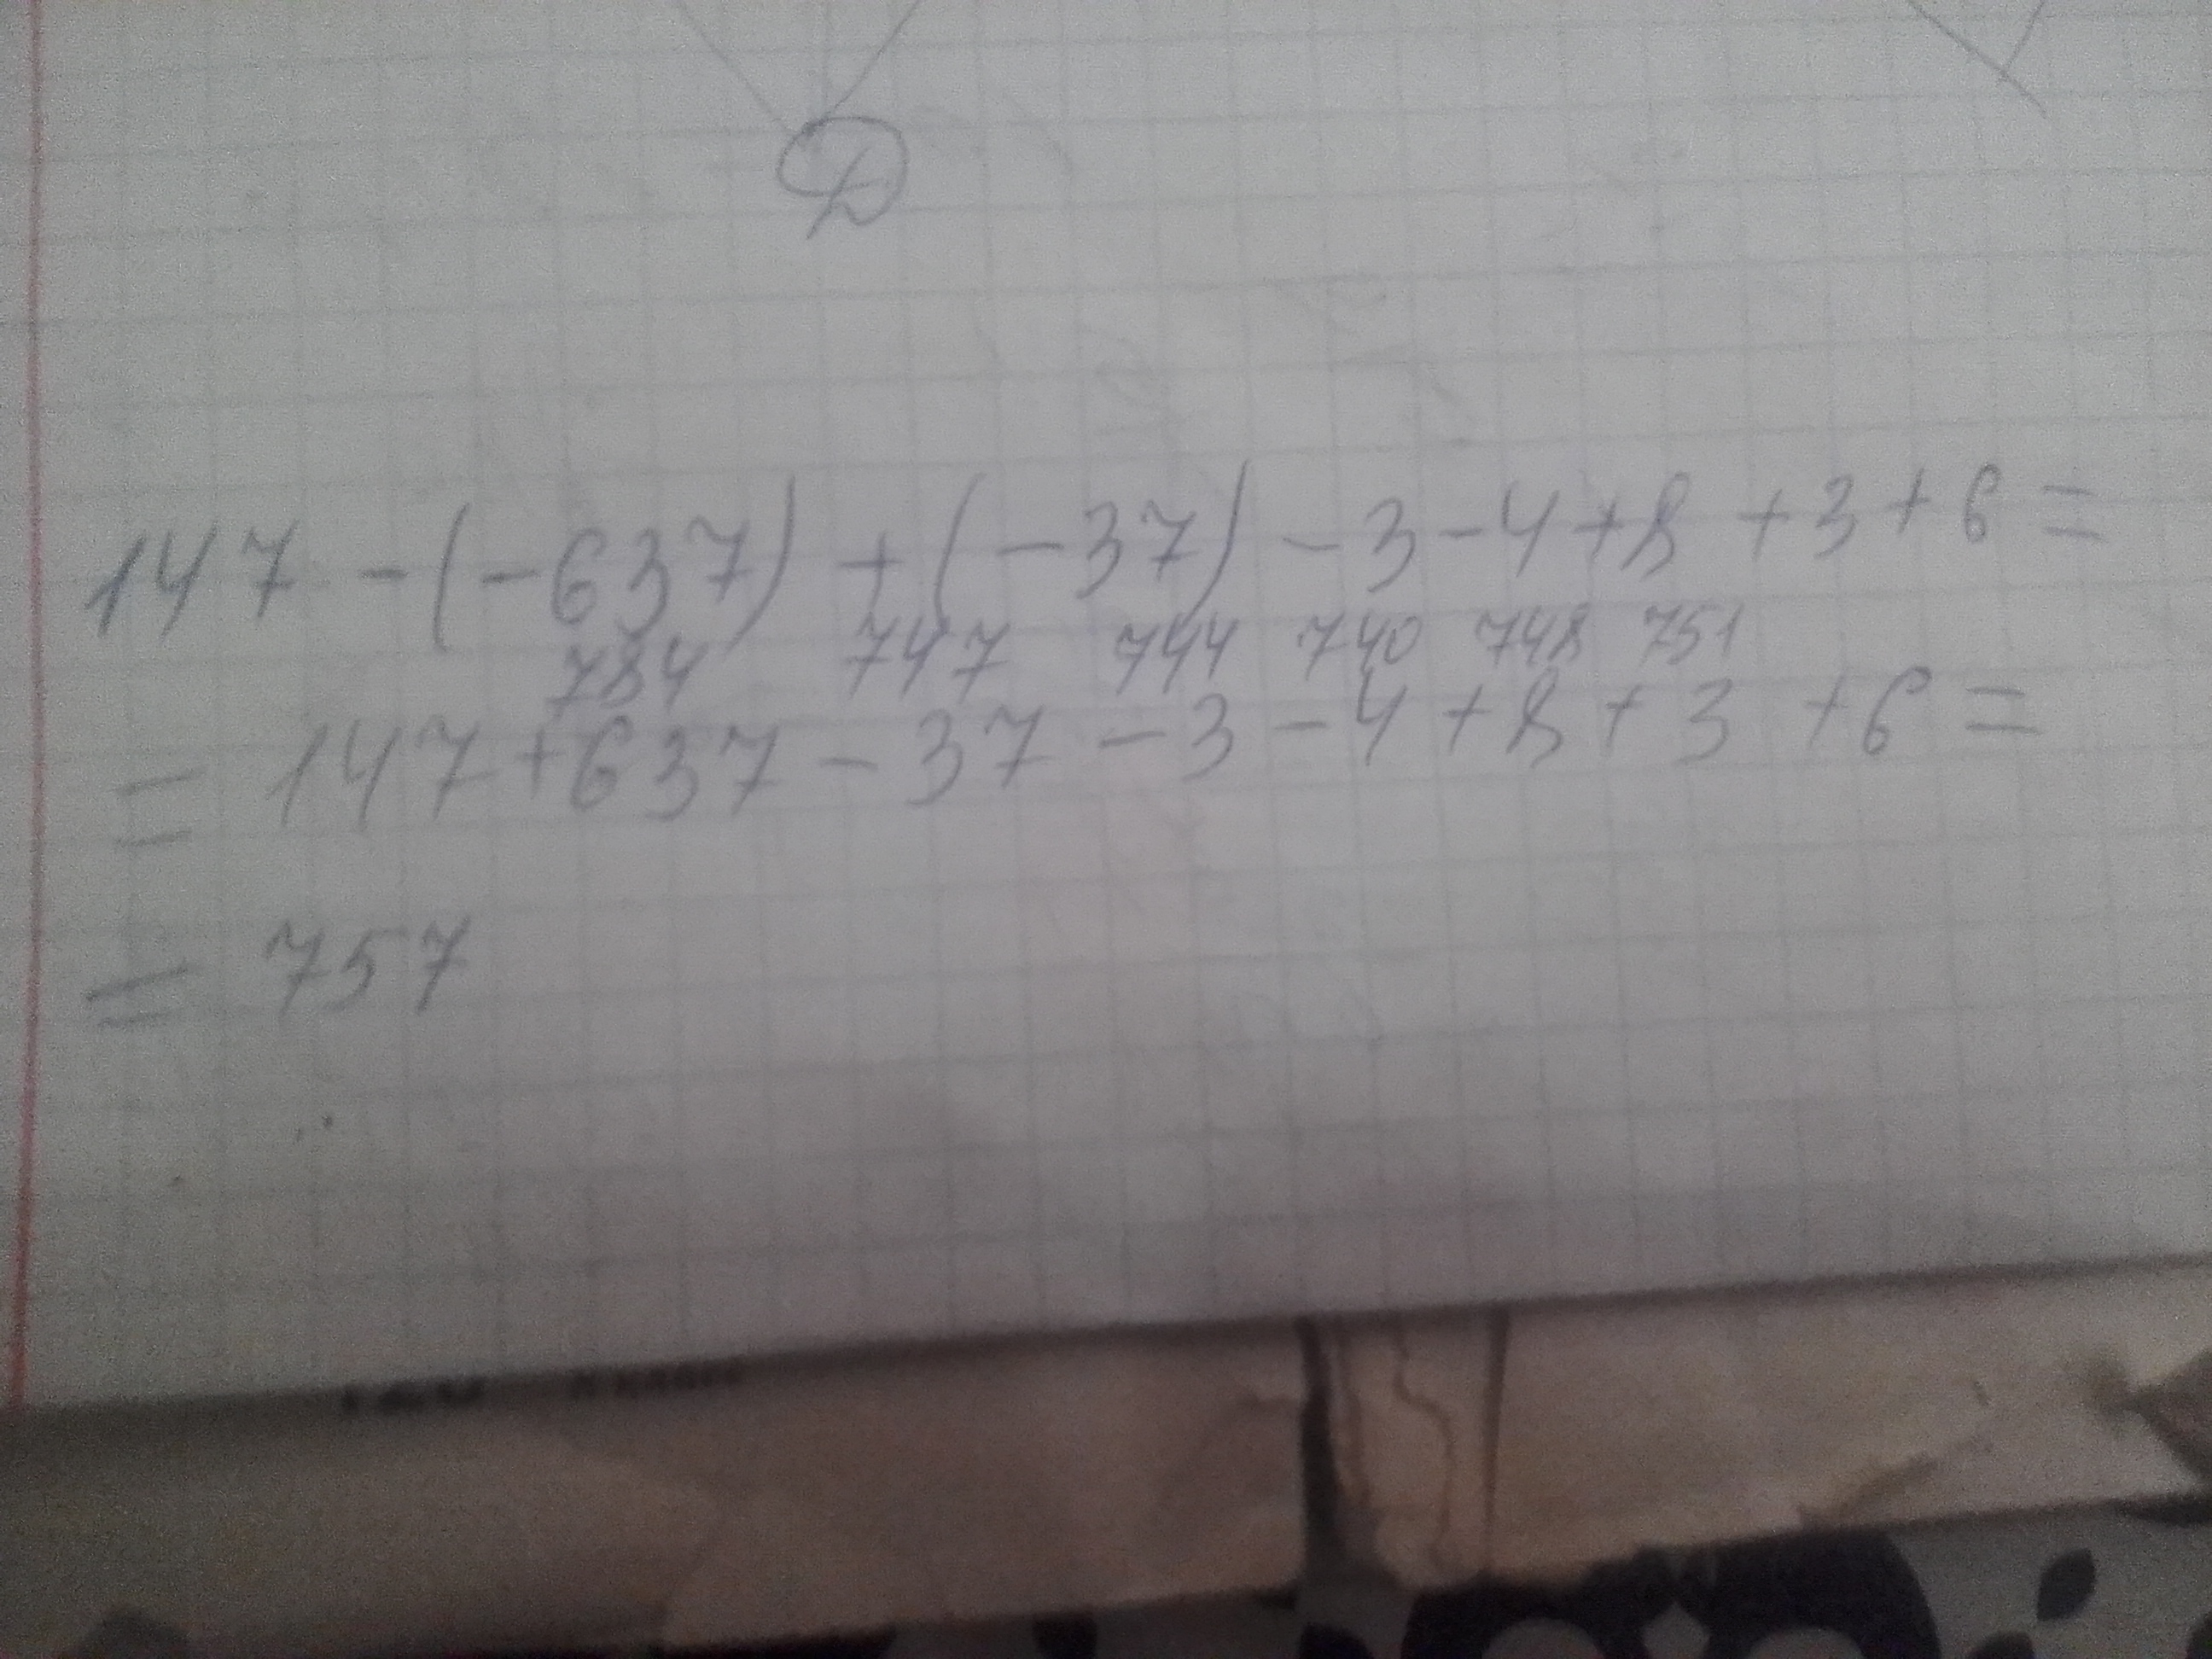 D
147 - (-637) + (-37) - 3 - 4 + 8 + 3 + 6 =
784 747 744 740 748 751
= 147 + 637 - 37 - 3 - 4 + 8 + 3 + 6 =
= 757